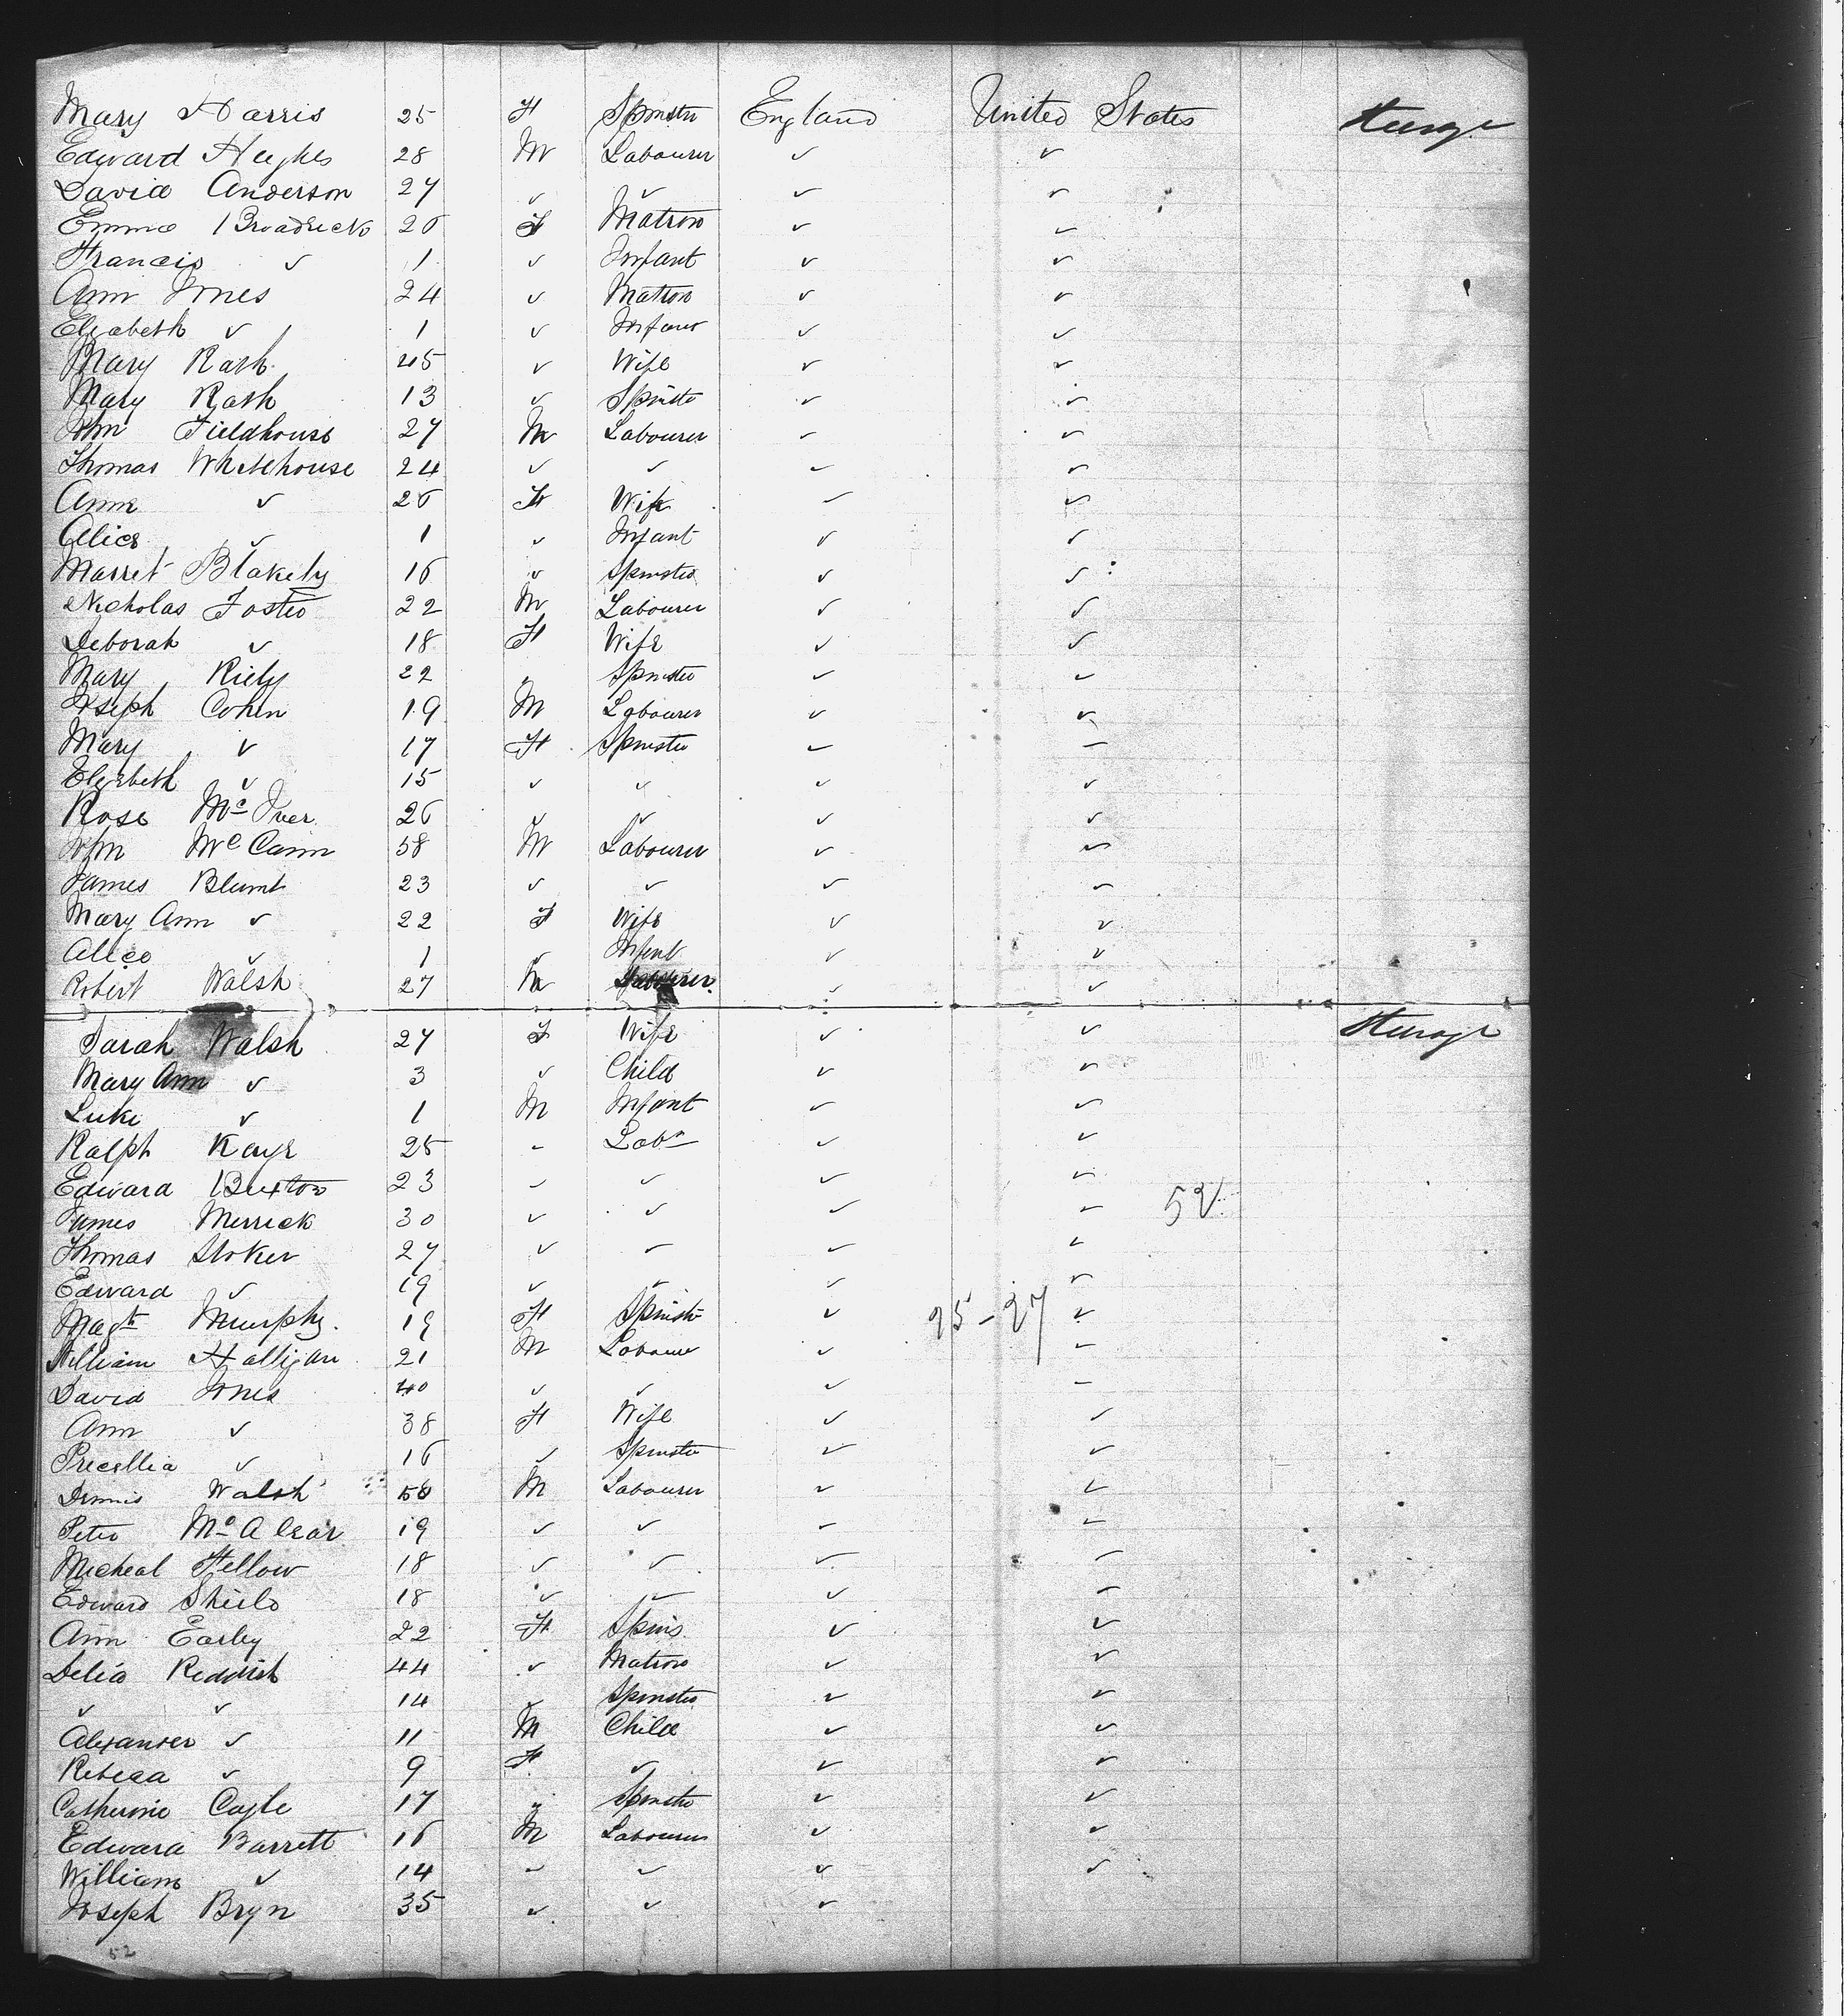 Mary Harris 25 F Spinster England United States Steerage
Edward Hughes 28 M Labourer ✓ ✓
David Anderson 27 ✓ ✓ ✓ ✓
Emma Broadrick 26 F Matron ✓ ✓
Francis ✓ 1 ✓ Infant ✓ ✓
Ann Jones 24 ✓ Matron ✓ ✓
Elizabeth ✓ 1 ✓ Infant ✓ ✓
Mary Rash 45 ✓ Wife ✓ ✓
Mary Rash 13 ✓ Spinster ✓ ✓
John Fieldhouse 27 M Labourer ✓ ✓
Thomas Whitehouse 24 ✓ ✓ ✓ ✓
Ann ✓ 26 F Wife ✓ ✓
Alice ✓ 1 ✓ Infant ✓ ✓
Blakely 16 ✓ Spinster ✓ ✓
Nicholas Foster 22 M Labourer ✓ ✓
Deborah ✓ 18 F Wife ✓ ✓
Mary Riely 22 ✓ Spinster ✓ ✓
Joseph Cohen 19 M Labourer ✓ ✓
Mary ✓ 17 F Spinster ✓ ✓
Elizabeth ✓ 15 ✓ ✓ ✓ ✓
Rose McIver 26 ✓ ✓ ✓ ✓
John McCann 58 M Labourer ✓ ✓
James Blunt 23 ✓ ✓ ✓ ✓
Mary Ann ✓ 22 F Wife ✓ ✓
Alice ✓ 1 ✓ Infant ✓ ✓
Robert Walsh 27 M Labourer ✓ ✓
Sarah Walsh 27 F Wife ✓ ✓ Steerage
Mary Ann ✓ 3 ✓ Child ✓ ✓
Luke ✓ 1 M Infant ✓ ✓
Ralph Kaye 25 ✓ Labr ✓ ✓
Edward Buxton 23 ✓ ✓ ✓ ✓
James Merrick 30 ✓ ✓ ✓ ✓ 52
Thomas Stoker 27 ✓ ✓ ✓ ✓
Edward ✓ 19 ✓ ✓ ✓ ✓
Magt Murphy 19 F Spinster ✓ 25-27 ✓
William Halligan 21 M Labourer ✓ ✓
David Jones 40 ✓ ✓ ✓ ✓
Ann ✓ 38 F Wife ✓ ✓
Precellia ✓ 16 ✓ Spinster ✓ ✓
Dennis Walsh M Labourer ✓ ✓
Peter McAlear 19 ✓ ✓ ✓ ✓
Micheal Fellow 18 ✓ ✓ ✓ ✓
Edward Shiels 18 ✓ ✓ ✓ ✓
Ann Earley 22 F Spins ✓ ✓
Delia Reddish 44 ✓ Matron ✓ ✓
✓ ✓ 14 ✓ Spinster ✓ ✓
Alexander ✓ 11 M Child ✓ ✓
Rebecca ✓ 9 F ✓ ✓ ✓
Catherine Coyle 17 ✓ Spinster ✓ ✓
Edward Barrett 16 M Labourer ✓ ✓
William ✓ 14 ✓ ✓ ✓ ✓
Joseph Bryn 35 ✓ ✓ ✓
52